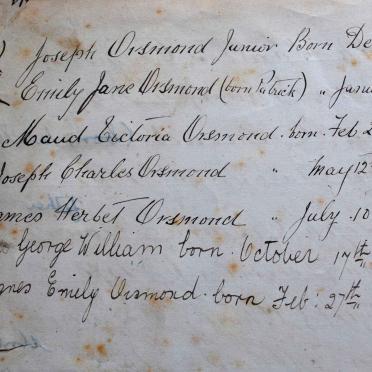 Joseph Orsmond Junior Born De
Emily Jane Orsmond (born Patrick) " Janu
Maud Victoria Orsmond. born. Feb 2
Joseph Charles Orsmond " May 12th
ames Herbet Orsmond " July 10
George William born. October 17th
nes Emily Orsmond. born Feb: 27th